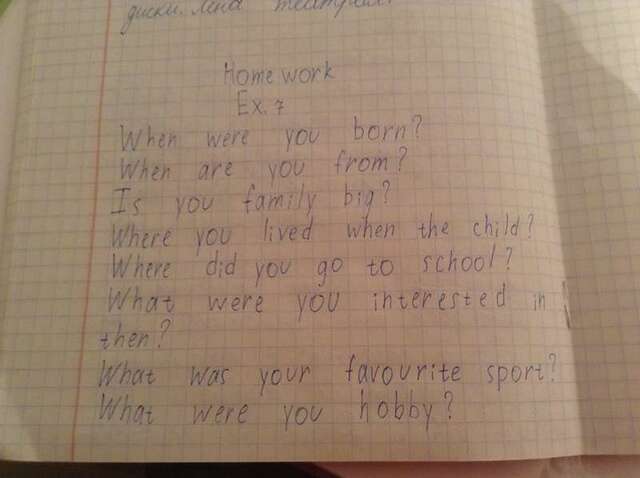 диски.
Home work
Ex. 7
When were you born?
When are you from?
Is you family big?
Where you lived when the child?
Where did you go to school?
What were you interested in
then?
What was your favourite sport?
What were you hobby?